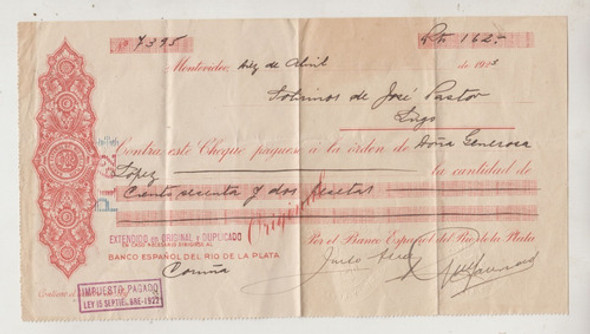 Nº 7395 Pts 162.-
Montevideo, diez de Abril de 1923
Sobrinos de José Pastor
Lugo
Contra este Cheque páguese á la órden de Doña Generosa
López la cantidad de
Ciento sesenta y dos pesetas
Original
EXTENDIDO en ORIGINAL y DUPLICADO
EN CASO NECESARIO DIRIGIRSE AL
BANCO ESPAÑOL DEL RIO DE LA PLATA
Coruña
Por el Banco Español del Rio de la Plata
IMPUESTO PAGADO
LEY 15 SEPTIEMBRE-1922